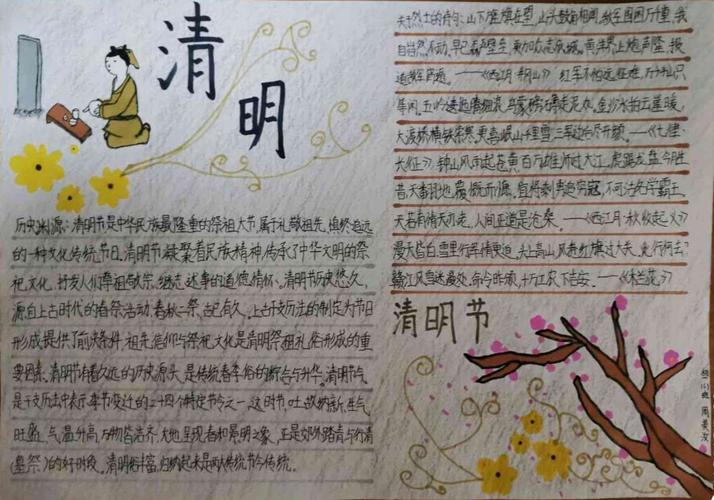 清
明
历史渊源:清明节是中华民族最隆重的祭祖大节,属于礼敬祖先、慎终追远
的一种文化传统节日。清明节凝聚着民族精神,传承了中华文明的祭
祀文化,抒发人们尊祖敬宗、继志述事的道德情怀。清明节历史悠久,
源自上古时代的春祭活动,春秋二祭,古已有之。上古干支历法的制定为节日
形成提供了前决条件,祖先信仰与祭祀文化是清明祭祖礼俗形成的重
要因素。清明节有着久远的历史源头,是传统春季俗的综合与升华。清明节气
是干支历法中表示季节变迁的二十四个特定节令之一,这时节,吐故纳新、生气
旺盛、气温升高,万物皆洁齐,大地呈现春和景明之象,正是郊外踏青与行清
(墓祭)的好时段。清明俗丰富,归纳起来是两大传统节令传统。
关于烈士的诗句:山下旌旗在望,山头鼓角相闻。敌军围困万千重,我
自岿然不动。早已森严壁垒,更加众志成城。黄洋界上炮声隆,报
道敌军宵遁。——《西江月·井冈山》 红军不怕远征难,万水千山只
等闲。五岭逶迤腾细浪,乌蒙磅礴走泥丸。金沙水拍云崖暖,
大渡桥横铁索寒。更喜岷山千里雪,三军过后尽开颜。——《七律·
长征》 钟山风雨起苍黄,百万雄师过大江。虎踞龙盘今胜
昔,天翻地覆慨而慷。宜将剩勇追穷寇,不可沽名学霸王。
天若有情天亦老,人间正道是沧桑。——《西江月·秋收起义》
漫天皆白,雪里行军情更迫。头上高山,风卷红旗过大关。此行何去?
赣江风雪迷漫处。命令昨颁,十万工农下吉安。——《木兰花》
清明节